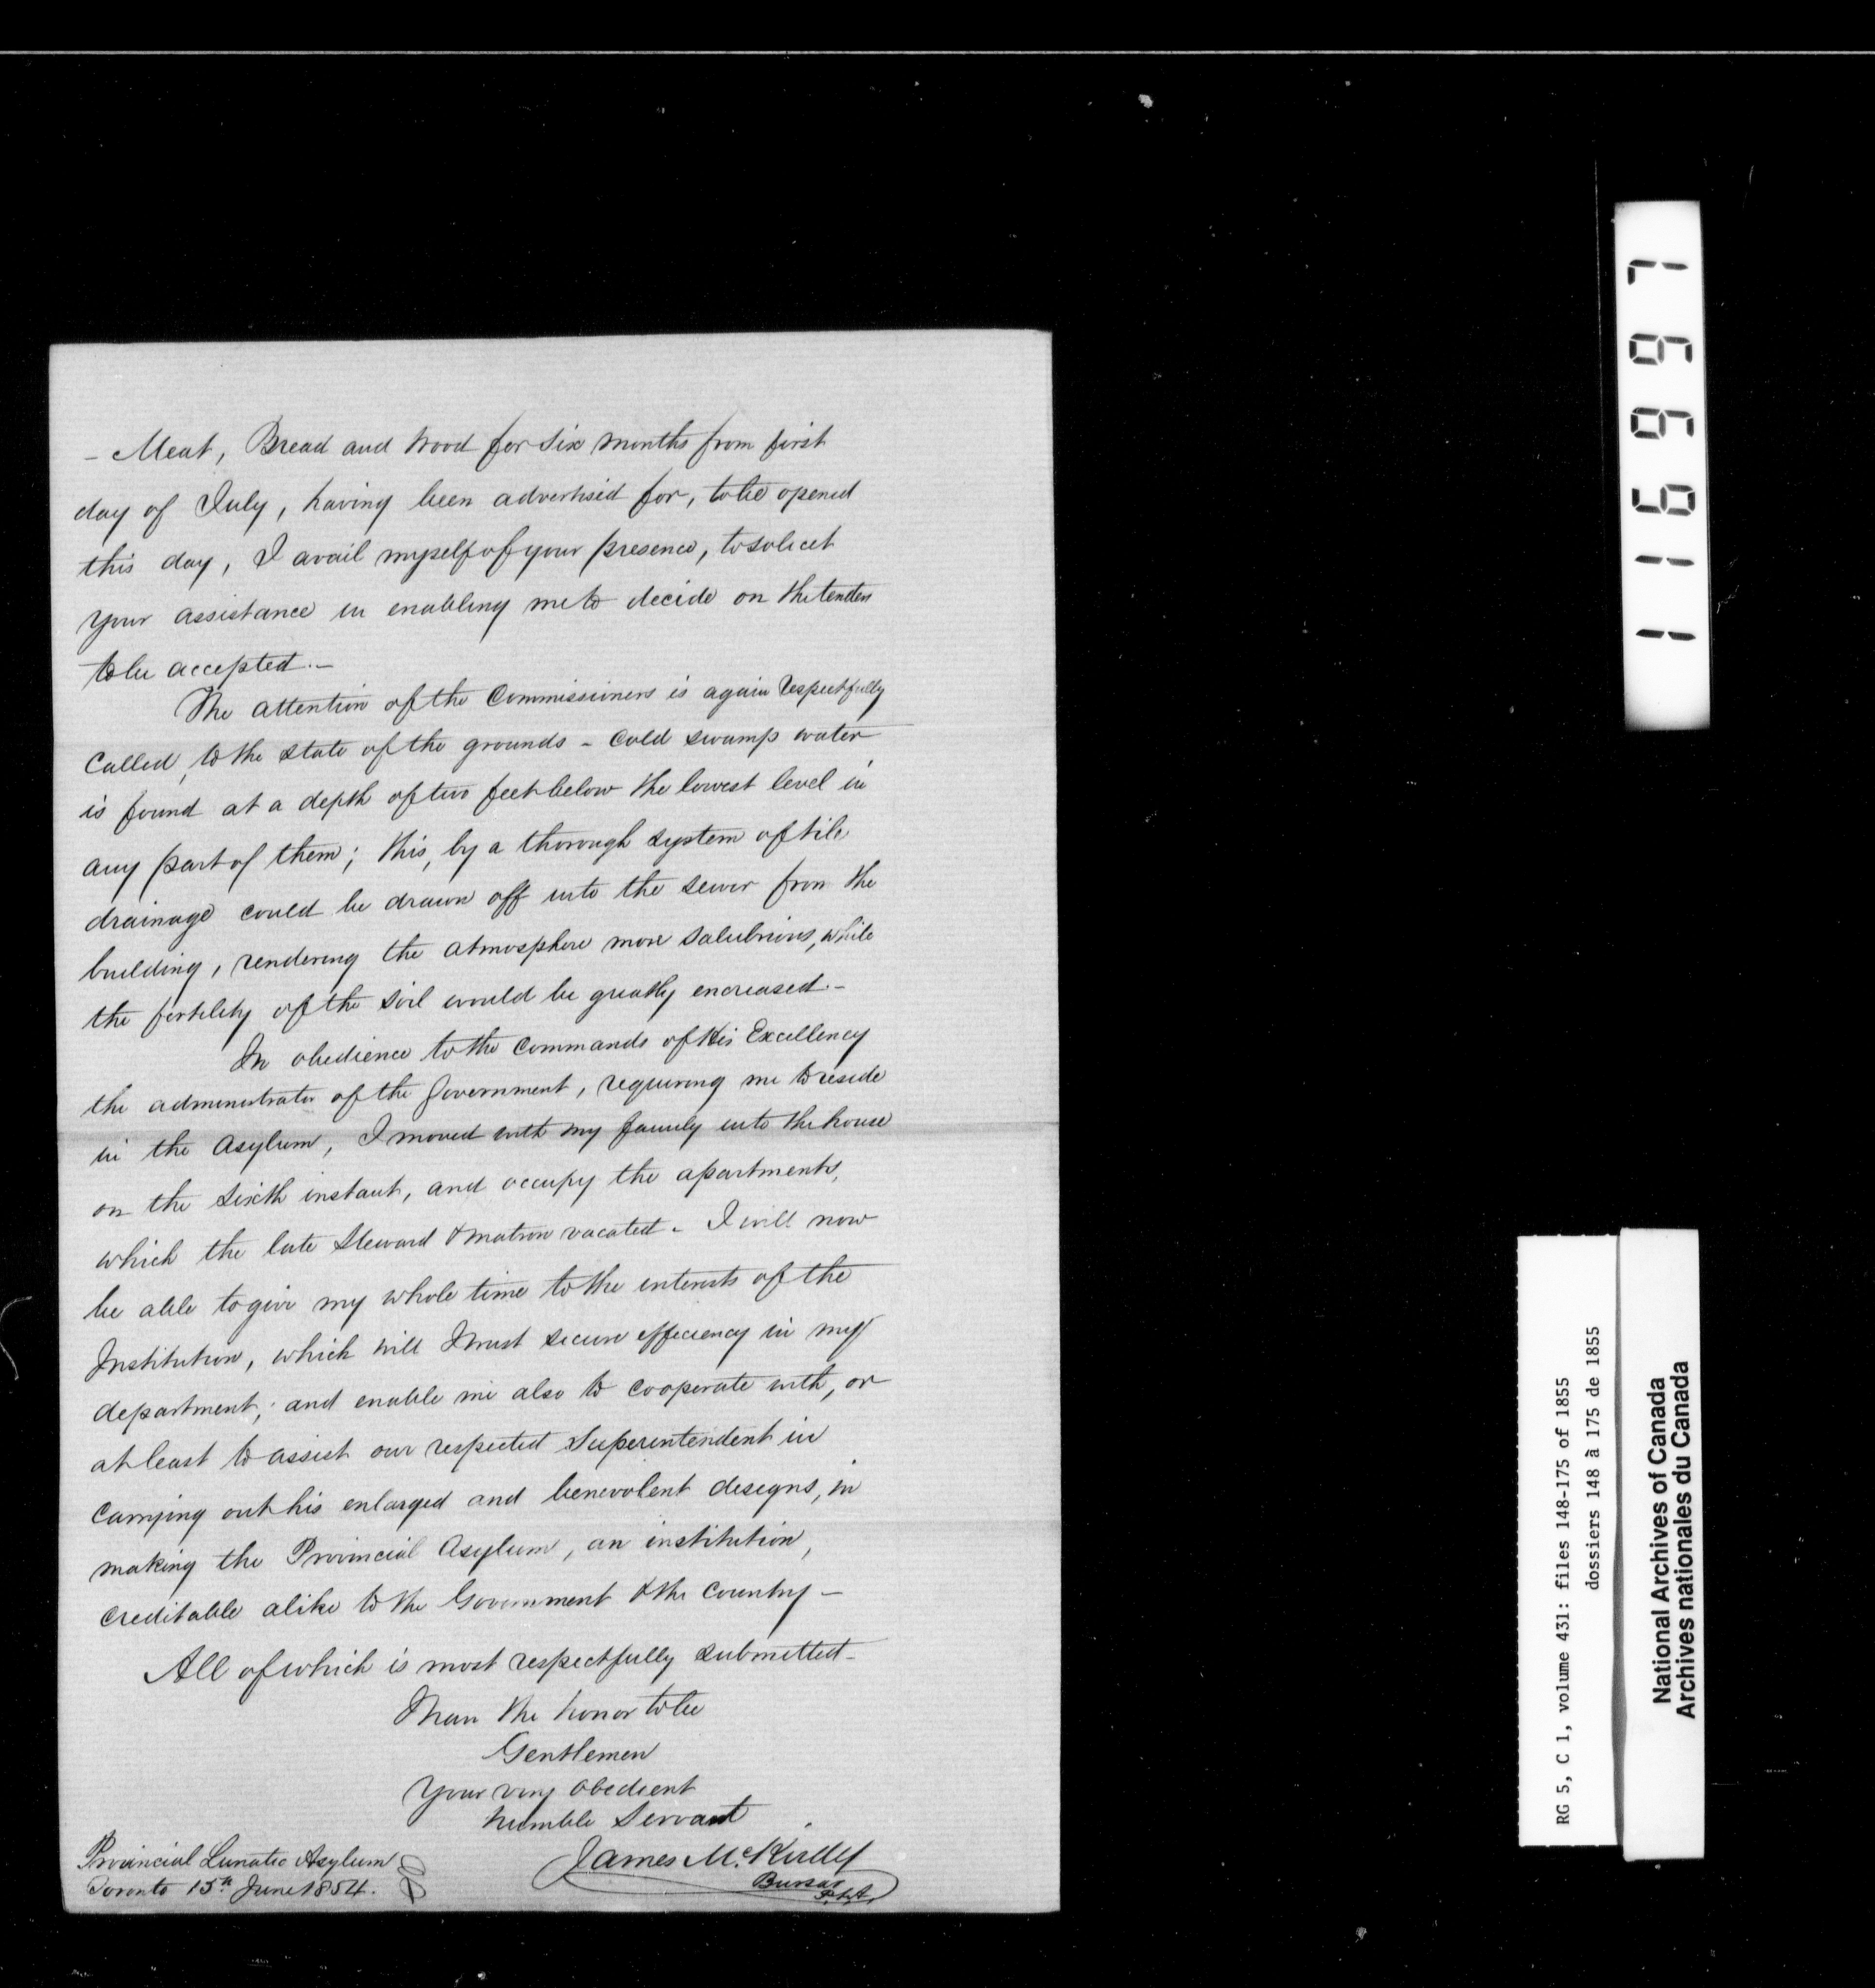 - Meat, Bread and Wood for Six months from first
day of July, having been advertised for, to be opened
this day, I avail myself of your presence, to solicet
your assistance in enabling me to decide on the tenders
to be accepted.-
The attention of the Commissioners is again respectfully
Called, to the state of the grounds - Cold swamp water
is found at a depth of two feet below the lowest level in
any part of them; this, by a thorough system of tile
drainage could be drawn off into the sewer from the
building, rendering the atmosphere more salubrious, while
the fertility of the soil would be greatly encreased.-
In obedience to the Commands of His Excellency
the administrator of the Government, requiring me to reside
in the Asylum, I moved with my family into the house
on the Sixth instant, and occupy the apartments,
which the late Steward & matron vacated - I will now
be able to give my whole time to the interests of the
Institution, which will I trust secure efficiency in my
department; and enable me also to cooperate with, or
at least to assist our respected Superintendent in
Carrying out his enlarged and benevolent designs, in
making the Provincial Asylum, an institution,
Creditable alike to the Government & the Country -
All of which is most respectfully submitted -
I have the honor to be
Gentlemen
Your very obedient
humble Servant
James McKirdly
Bursar
P.L.A.
Provincial Lunatic Asylum
Toronto 15th June 1854.
1 1 9 6 6 7
RG 5, C 1, volume 431: files 148-175 of 1855
dossiers 148 à 175 de 1855
National Archives of Canada
Archives nationales du Canada